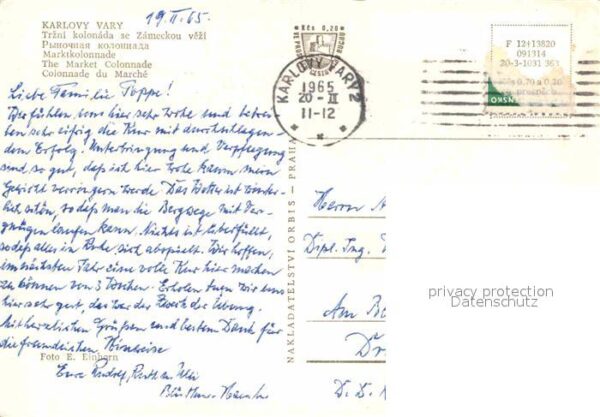 19.II.65.
KARLOVY VARY
Tržní kolonáda se Zámeckou věží
Рыночная колоннада
Marktkolonnade
The Market Colonnade
Colonnade du Marché
Liebe Familie Toppe!
Wir fühlen uns hier sehr wohl und betrei-
ben sehr eifrig die Kur mit durchschlagen-
dem Erfolg. Unterbringung und Verpflegung
sind so gut, daß ich hier wohl kaum mein
Gewicht verringern werde. Das Wetter ist winter-
lich schön, sodaß man die Bergwege mit Ver-
gnügen laufen kann. Nichts ist überfüllt,
sodaß alles in Ruhe sich abspielt. Wir hoffen,
im nächsten Jahr eine volle Kur hier machen
zu können von 3 Wochen. Erholen tun wir uns
hier sehr gut, das war der Zweck der Übung.
Mit herzlichen Grüßen und bestem Dank für
die freundlichen Hinweise
Foto E. Einhorn
Eure Rudolf, Ruth
NAKLADATELSTVÍ ORBIS - PRAHA
Kčs 0,20
KARLOVY VARY 2
1965
20-II
11-12
F 12113820
091314
20-3-1031 363
Kčs 0,70 a 0,20
NSKO
Herrn
Dipl. Ing.
Am
D. D. R
privacy protection
Datenschutz